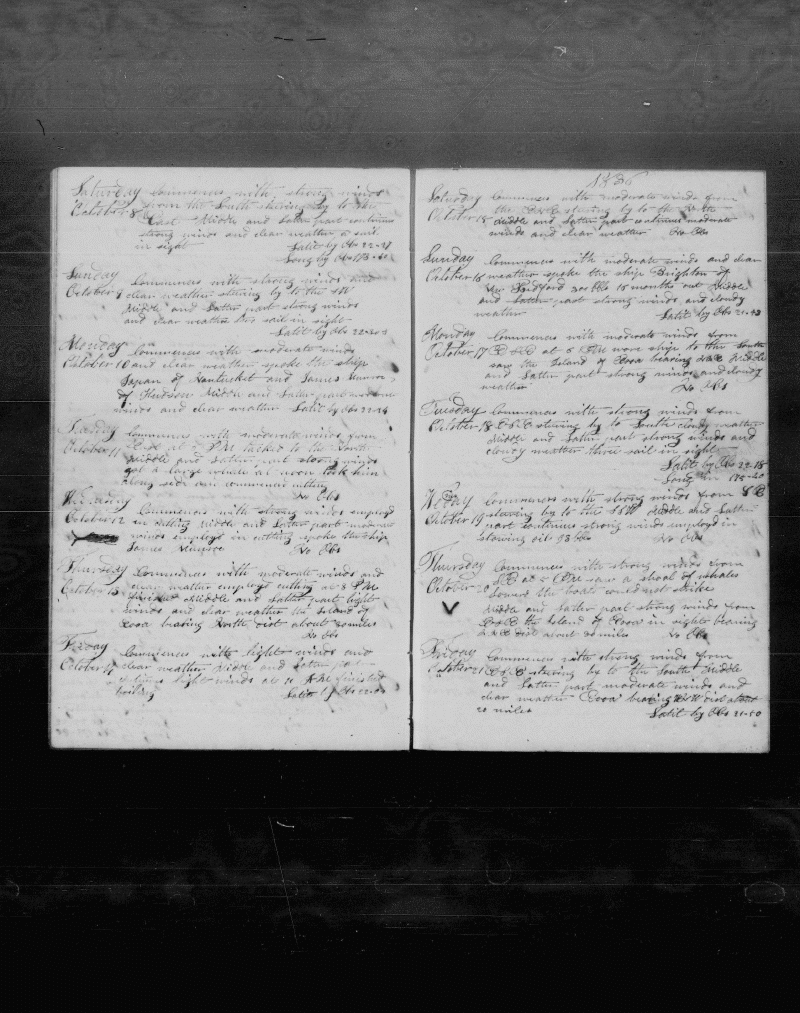 Saturday Commences with strong winds
October 8 from the South stering by to the
East Middle and Latter part continues
strong winds and clear weather a sail
in sight Latit by Obs 22-27
Long by Obs 173-40
Sunday Commences with strong winds and
October 9 clear weather stering by to the SW
Middle and Latter part strong winds
and clear weather two sail in sight
Latit by Obs 22-
Monday Commences with moderate winds
October 10 and clear weather spoke the ship
Japan of Nantucket and James Munroe
of Hudson Middle and Latter part moderate
winds and clear weather Latit by Obs 22-
Tuesday Commences with moderate winds from
October 11 at PM tacked to the South
Middle and Latter part strong winds
got a large whale at noon took him
along side and commenced cutting
No Obs
Wednesday Commences with strong winds employd
October 12 in cutting Middle and Latter part moderate
winds employd in cutting spoke the ship
James Munroe No Obs
Thursday Commences with moderate winds and
October 13 clear weather employd cutting at 8 PM
finished Middle and Latter part light
winds and clear weather the Island of
bearing North dist about 30 miles
No Obs
Friday Commences with light winds and
October 14 clear weather Middle and Latter part
continues light winds at AM finished
boiling Latit by Obs 22-
1836
Saturday Commences with moderate winds from
October 15 the stering by to the
Middle and Latter part continues moderate
winds and clear weather No Obs
Sunday Commences with moderate winds and clear
October 16 weather spoke the ship Brighton of
New Bedford 200 bbls 15 months out Middle
and Latter part strong winds and cloudy
weather Latit by Obs 21-43
Monday Commences with moderate winds from
October 17 at 5 PM wore ship to the South
saw the Island of bearing Middle
and Latter part strong winds and cloudy
weather No Obs
Tuesday Commences with strong winds from
October 18 stering by to South cloudy weather
Middle and Latter part strong winds and
cloudy weather three sail in sight
Latit by Obs 22-18
Long 175-20
Weday Commences with strong winds from SE
October 19 stering by to the SW Middle and Latter
part continues strong winds employd in
stowing oil 93 bbls No Obs
Thursday Commences with strong winds from
October 20 at 5 PM saw a shoal of whales
lowerd the boats could not strike
Middle and Latter part strong winds from
the Island of in sight bearing
dist about 20 miles No Obs
Friday Commences with strong winds from
October 21 stering by to the South Middle
and Latter part moderate winds and
clear weather bearing dist about
20 miles Latit by Obs 21-50